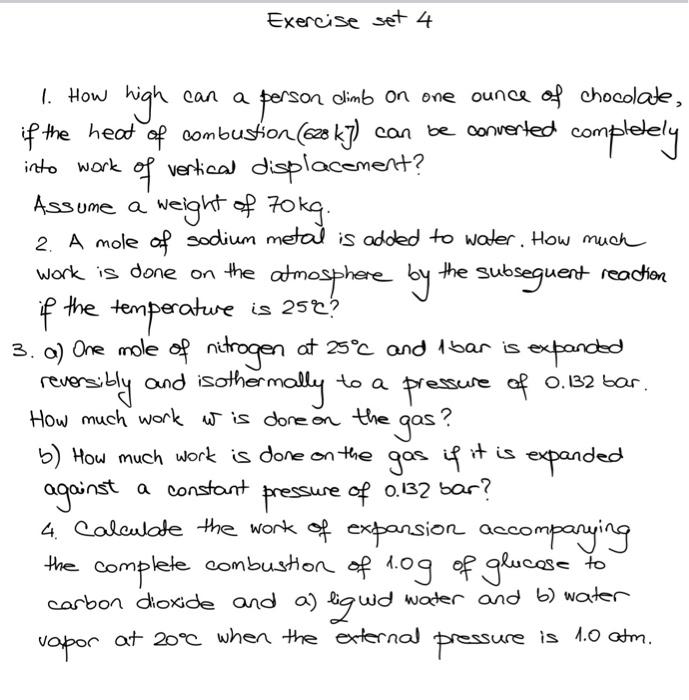 Exercise set 4
1. How high can a person climb on one ounce of chocolate,
if the heat of combustion (628 kJ) can be converted completely
into work of vertical displacement?
Assume a weight of 70kg.
2. A mole of sodium metal is added to water. How much
work is done on the atmosphere by the subsequent reaction
if the temperature is 25°C?
3. a) One mole of nitrogen at 25°C and 1 bar is expanded
reversibly and isothermally to a pressure of 0.132 bar.
How much work w is done on the gas?
b) How much work is done on the gas if it is expanded
against a constant pressure of 0.132 bar?
4. Calculate the work of expansion accompanying
the complete combustion of 1.0g of glucose to
carbon dioxide and a) liquid water and b) water
vapor at 20°C when the external pressure is 1.0 atm.